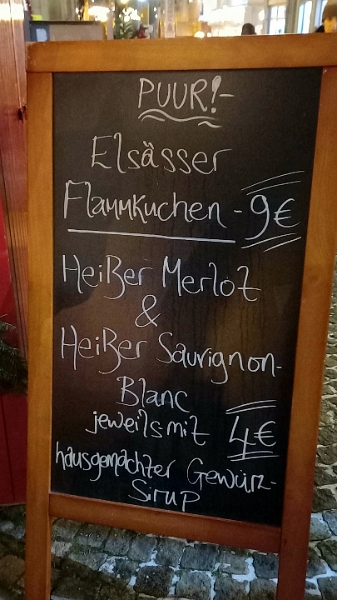 PUUR!-
Elsässer
Flammkuchen - 9€
Heißer Merlot
&
Heißer Sauvignon-
Blanc
jeweils mit 4€
hausgemachter Gewürz-
Sirup